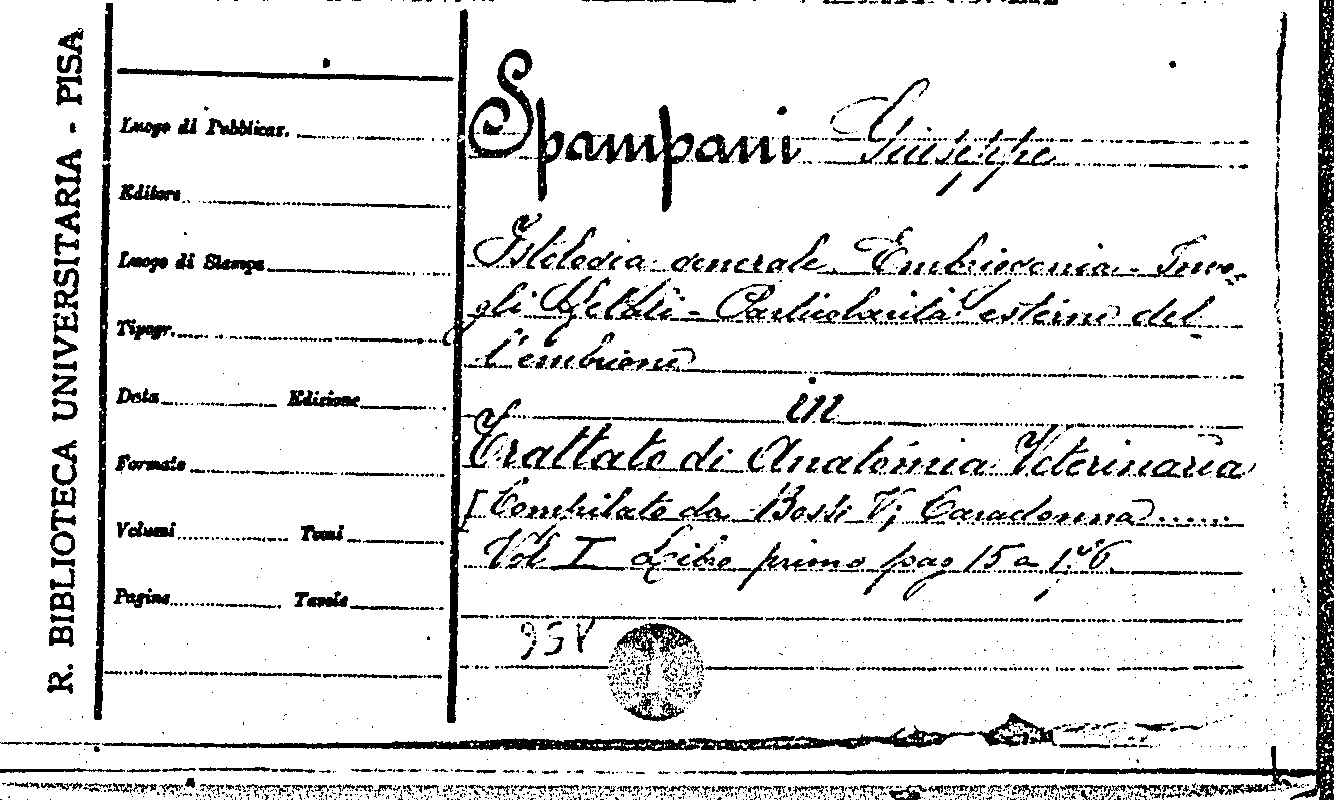 R. BIBLIOTECA UNIVERSITARIA - PISA
Luogo di Pubblicaz.
Editore
Luogo di Stampa
Tipogr.
Data Edizione
Formato
Volumi Tomi
Pagine Tavole
Spampani Giuseppe
Istologia generale. Embriogenia - Invo-
gli fetali - Particolarità esterne del
l'embrione
in
Trattato di Anatomia Veterinaria
[Compilato da Bossi V; Caradonna.....
Vol I Libro primo pag 15 a